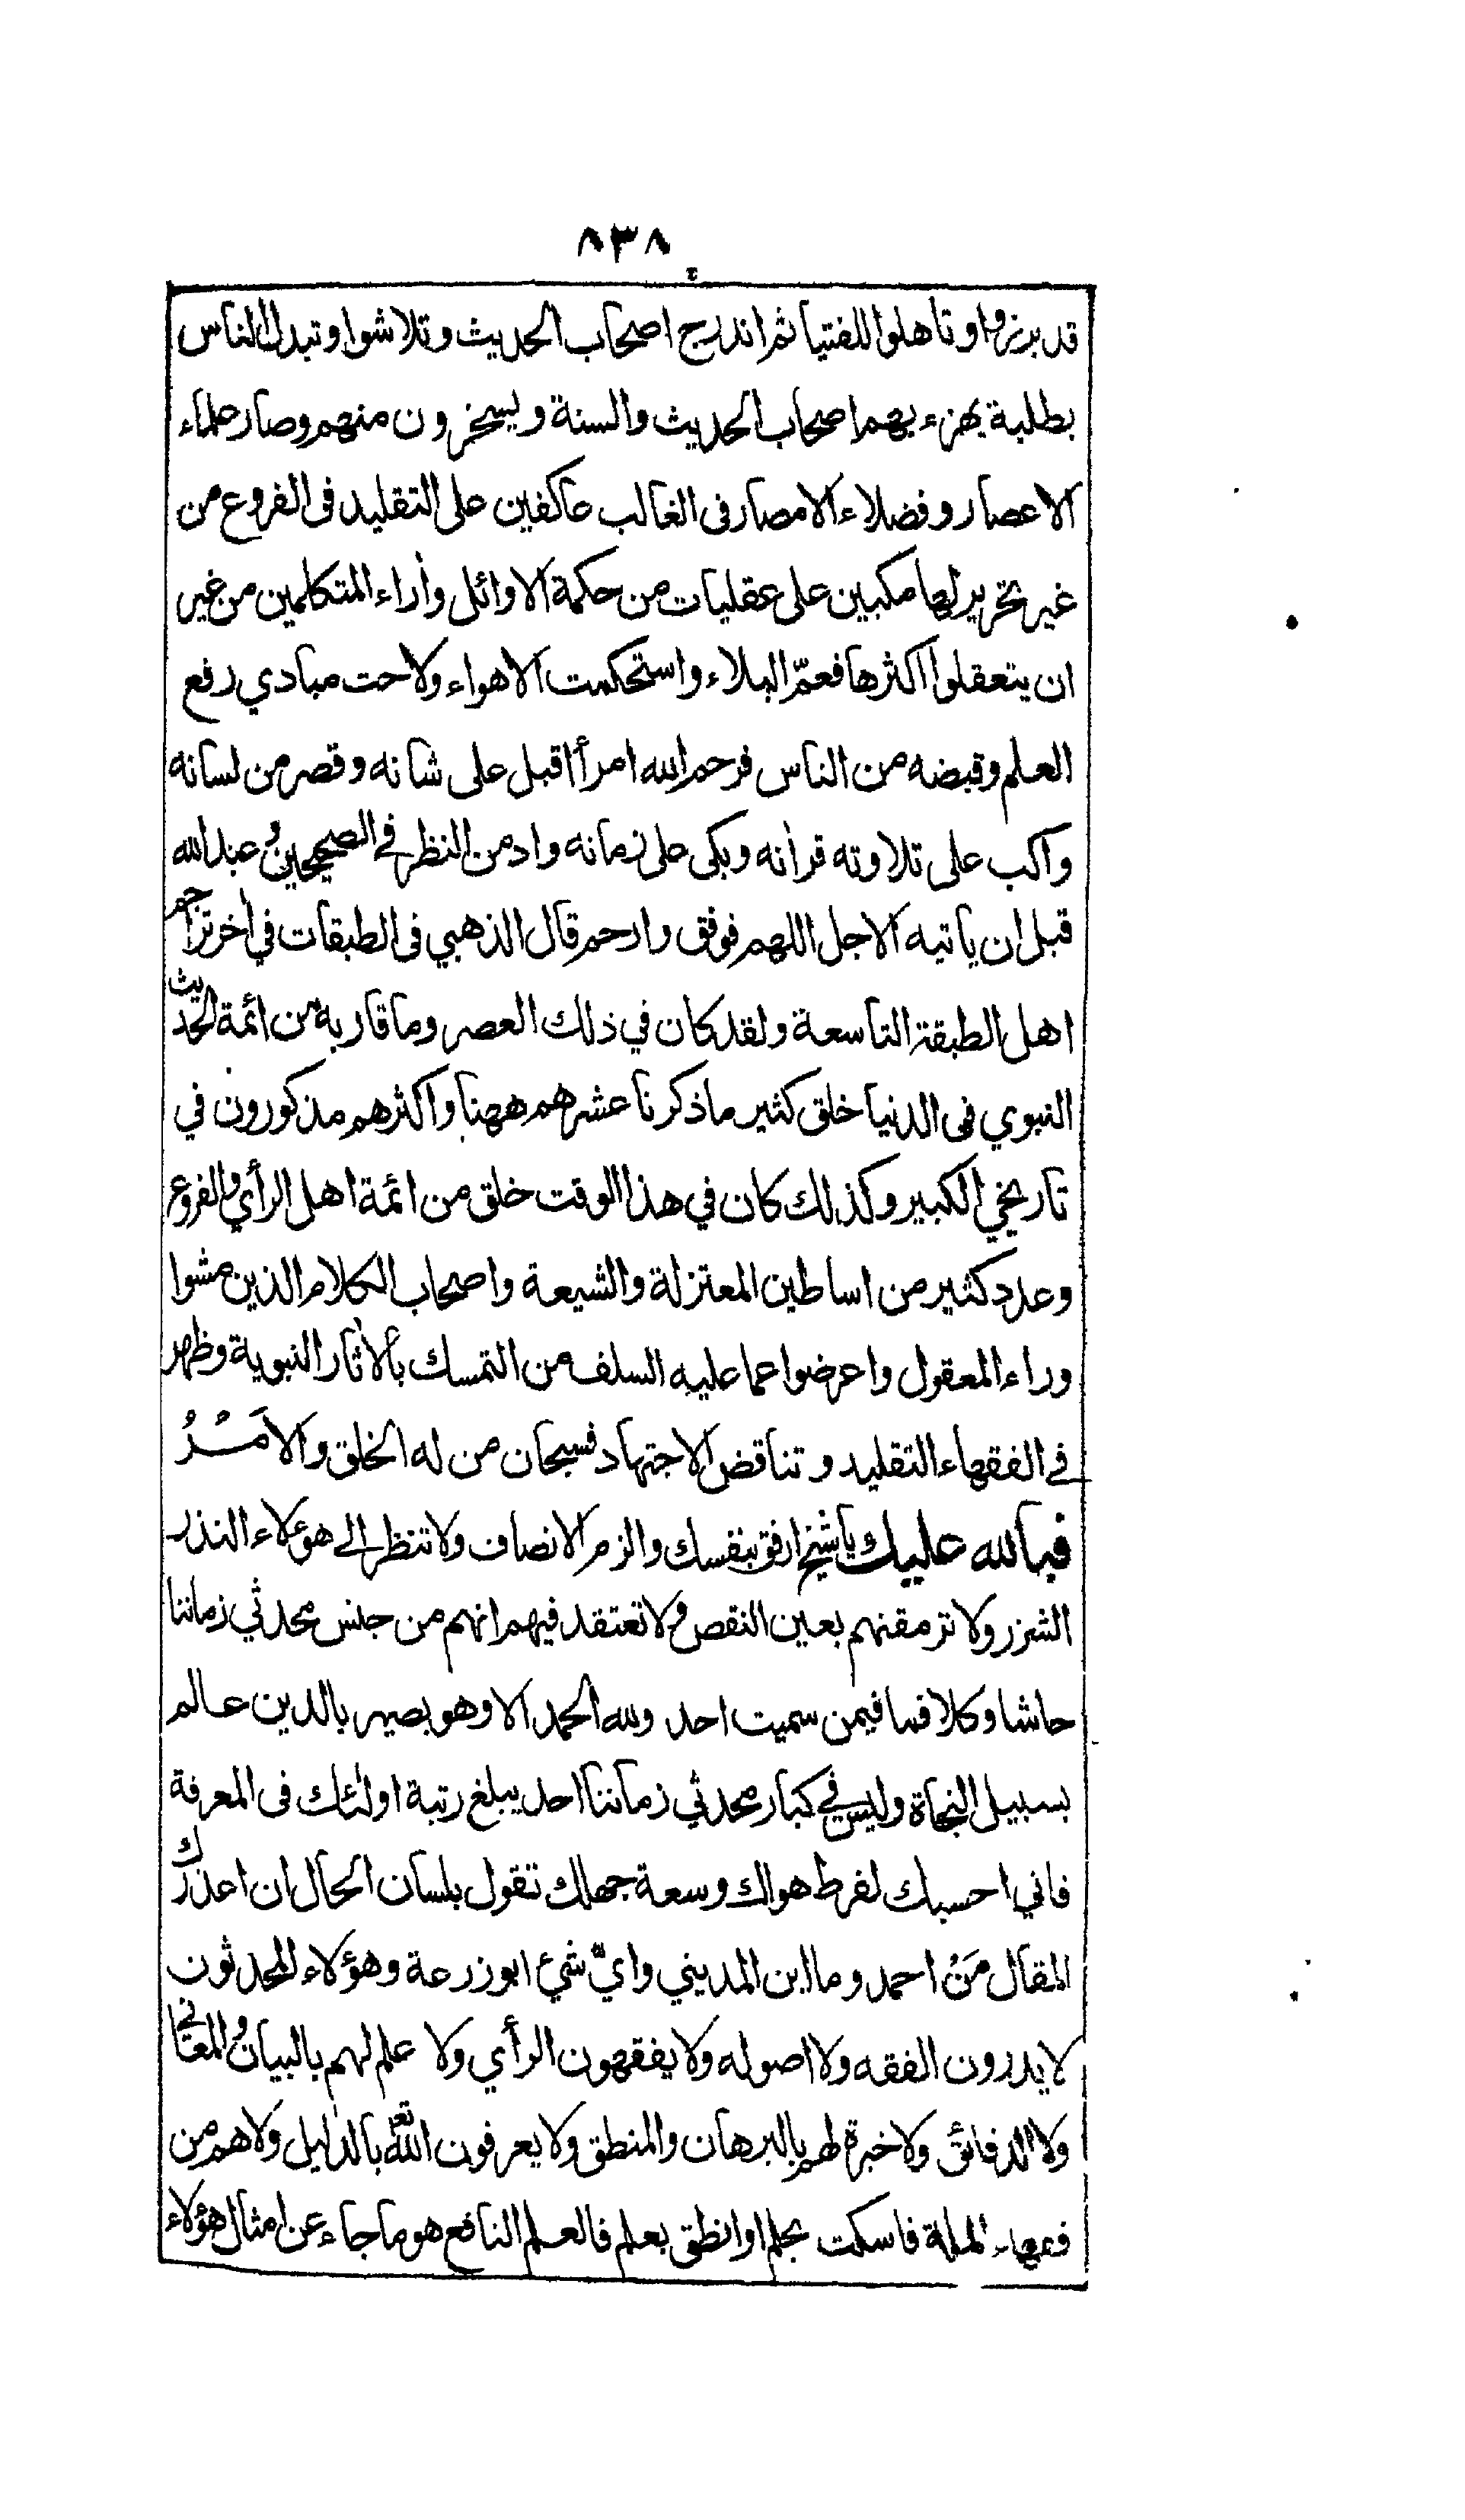 ٨٣٨
قد برزوا وتاهلوا للفتيا ثم اندرج اصحاب الحديث وتلاشوا وتبدل الناس
بطلبة يهزء بهم اصحاب الحديث والسنة ويسخرون منهم وصار علماء
الاعصار وفضلاء الامصار فى الغالب عاكفين على التقليد فى الفروع من
غير تحرير لها مكبين على عقليات من حكمة الاوائل وأراء المتكلمين من غير
ان يتعقلوا اكثرها فعمّ البلاء واستحكمت الاهواء ولاحت مبادي رفع
العلم وقبضه من الناس فرحم الله امرأ اقبل على شانه وقصر من لسانه
واكب على تلاوته قرانه وبكى على زمانه وادمن النظر في الصحيحين وعبد الله
قبل ان ياتيه الاجل اللهم فوفق وارحم قال الذهبي فى الطبقات في أخر تراجم
اهل الطبقة التاسعة ولقد كان في ذلك العصر وما قاربه من ائمة الحديث
النبوي فى الدنيا خلق كثير ماذكرنا عشرهم ههنا واكثرهم مذكورون في
تاريخي الكبير وكذلك كان في هذا الوقت خلق من ائمة اهل الرأي والفروع
وعدد كثير من اساطين المعتزلة والشيعة واصحاب الكلام الذين مشوا
وراء المعقول واعرضوا عما عليه السلف من التمسك بالأثار النبوية وظهر
في الفقهاء التقليد وتناقض الاجتهاد فسبحان من له الخلق والامْرُ
فبالله عليك يا شيخ ارفق بنفسك والزم الانصاف ولا تنظر الے هؤلاء النذر
الشزر ولا ترمقنهم بعين النقص ولا تعتقد فيهم انهم من جنس محدثي زماننا
حاشا وكلا فما فيمن سميت احد ولله الحمد الا وهو بصير بالدين عالم
بسبيل النجاة وليس في كبار محدثي زماننا احد يبلغ رتبة اولئك فى المعرفة
فاني احسبك لفرط هواك وسعة جهلك تقول بلسان الحال ان اعذرك
المقال مَنْ احمد وما ابن المديني وايّ شيء ابو زرعة وهؤلاء المحدثون
لا يدرون الفقه ولا اصوله ولا يفقهون الرأي ولا علم لهم بالبيان والمعاني
ولا الدقائق ولا خبرة لهم بالبرهان والمنطق ولا يعرفون الله تع بالدليل ولا هم من
فقهاء الملة فاسكت بحلم او انطق بعلم فالعلم النافع هو ما جاء عن امثال هؤلاء